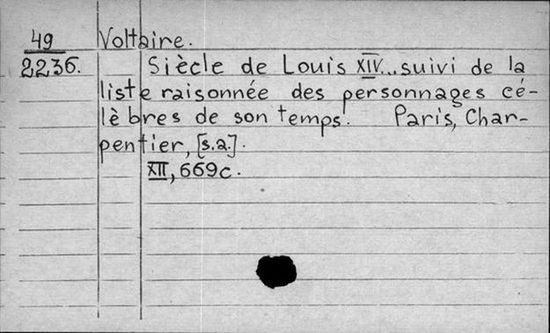 49 Voltaire.
2236. Siècle de Louis XIV... suivi de la
liste raisonnée des personnages cé-
lèbres de son temps. Paris, Char-
pentier, [s.a.].
XII, 669c.